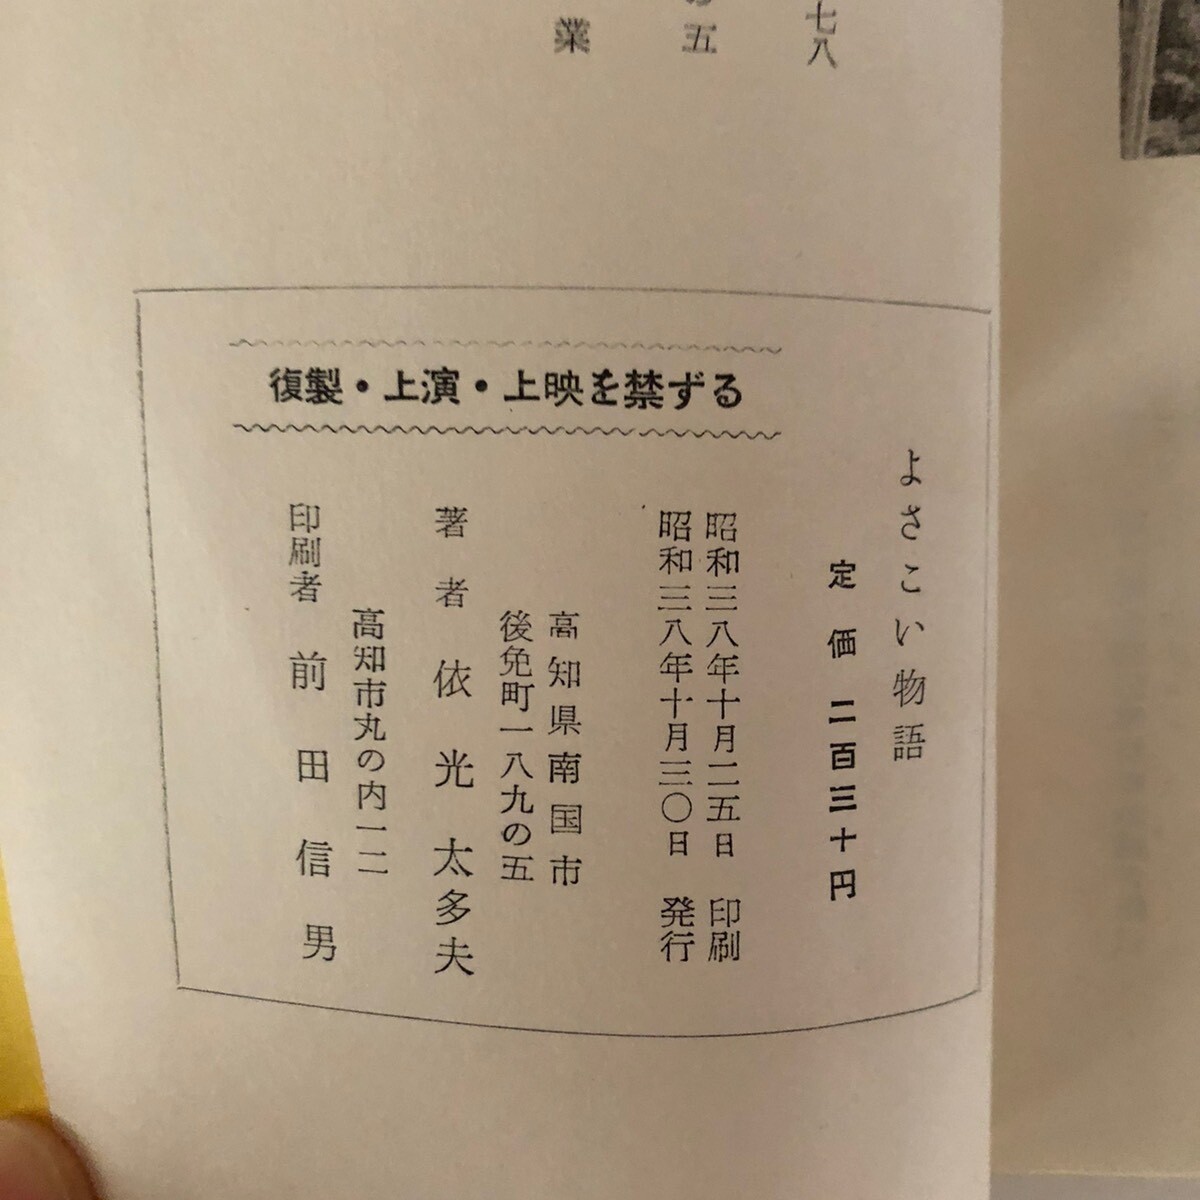 七八
五
業
復製・上演・上映を禁ずる
よさこい物語
定価 二百三十円
昭和三八年十月二五日 印刷
昭和三八年十月三〇日 発行
高知県南国市
後免町一八九の五
著者 依光太多夫
高知市丸の内一二
印刷者 前田信男